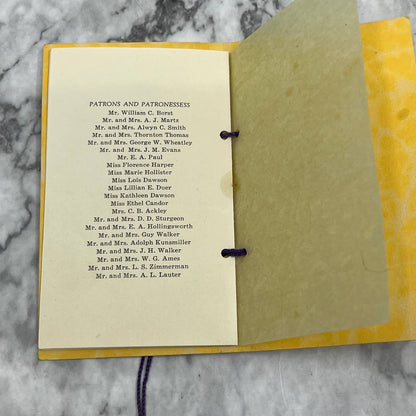 PATRONS AND PATRONESSESS
Mr. William C. Borst
Mr. and Mrs. A. J. Martz
Mr. and Mrs. Alwyn C. Smith
Mr. and Mrs. Thornton Thomas
Mr. and Mrs. George W. Wheatley
Mr. and Mrs. J. M. Evans
Mr. E. A. Paul
Miss Florence Harper
Miss Marie Hollister
Miss Lois Dawson
Miss Lillian E. Doer
Miss Kathleen Dawson
Miss Ethel Candor
Mrs. C. B. Ackley
Mr. and Mrs. D. D. Sturgeon
Mr. and Mrs. E. A. Hollingsworth
Mr. and Mrs. Guy Walker
Mr. and Mrs. Adolph Kunsmiller
Mr. and Mrs. J. H. Walker
Mr. and Mrs. W. G. Ames
Mr. and Mrs. L. S. Zimmerman
Mr. and Mrs. A. L. Lauter